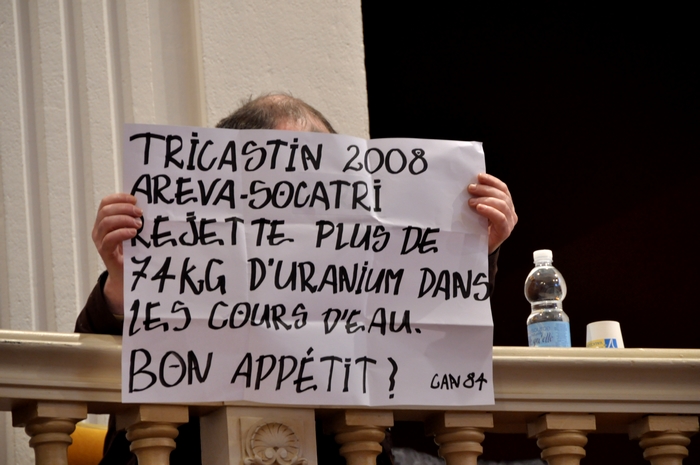 TRICASTIN 2008
AREVA-SOCATRI
REJETTE PLUS DE
74KG D'URANIUM DANS
LES COURS D'EAU.
BON APPÉTIT ? CAN 84